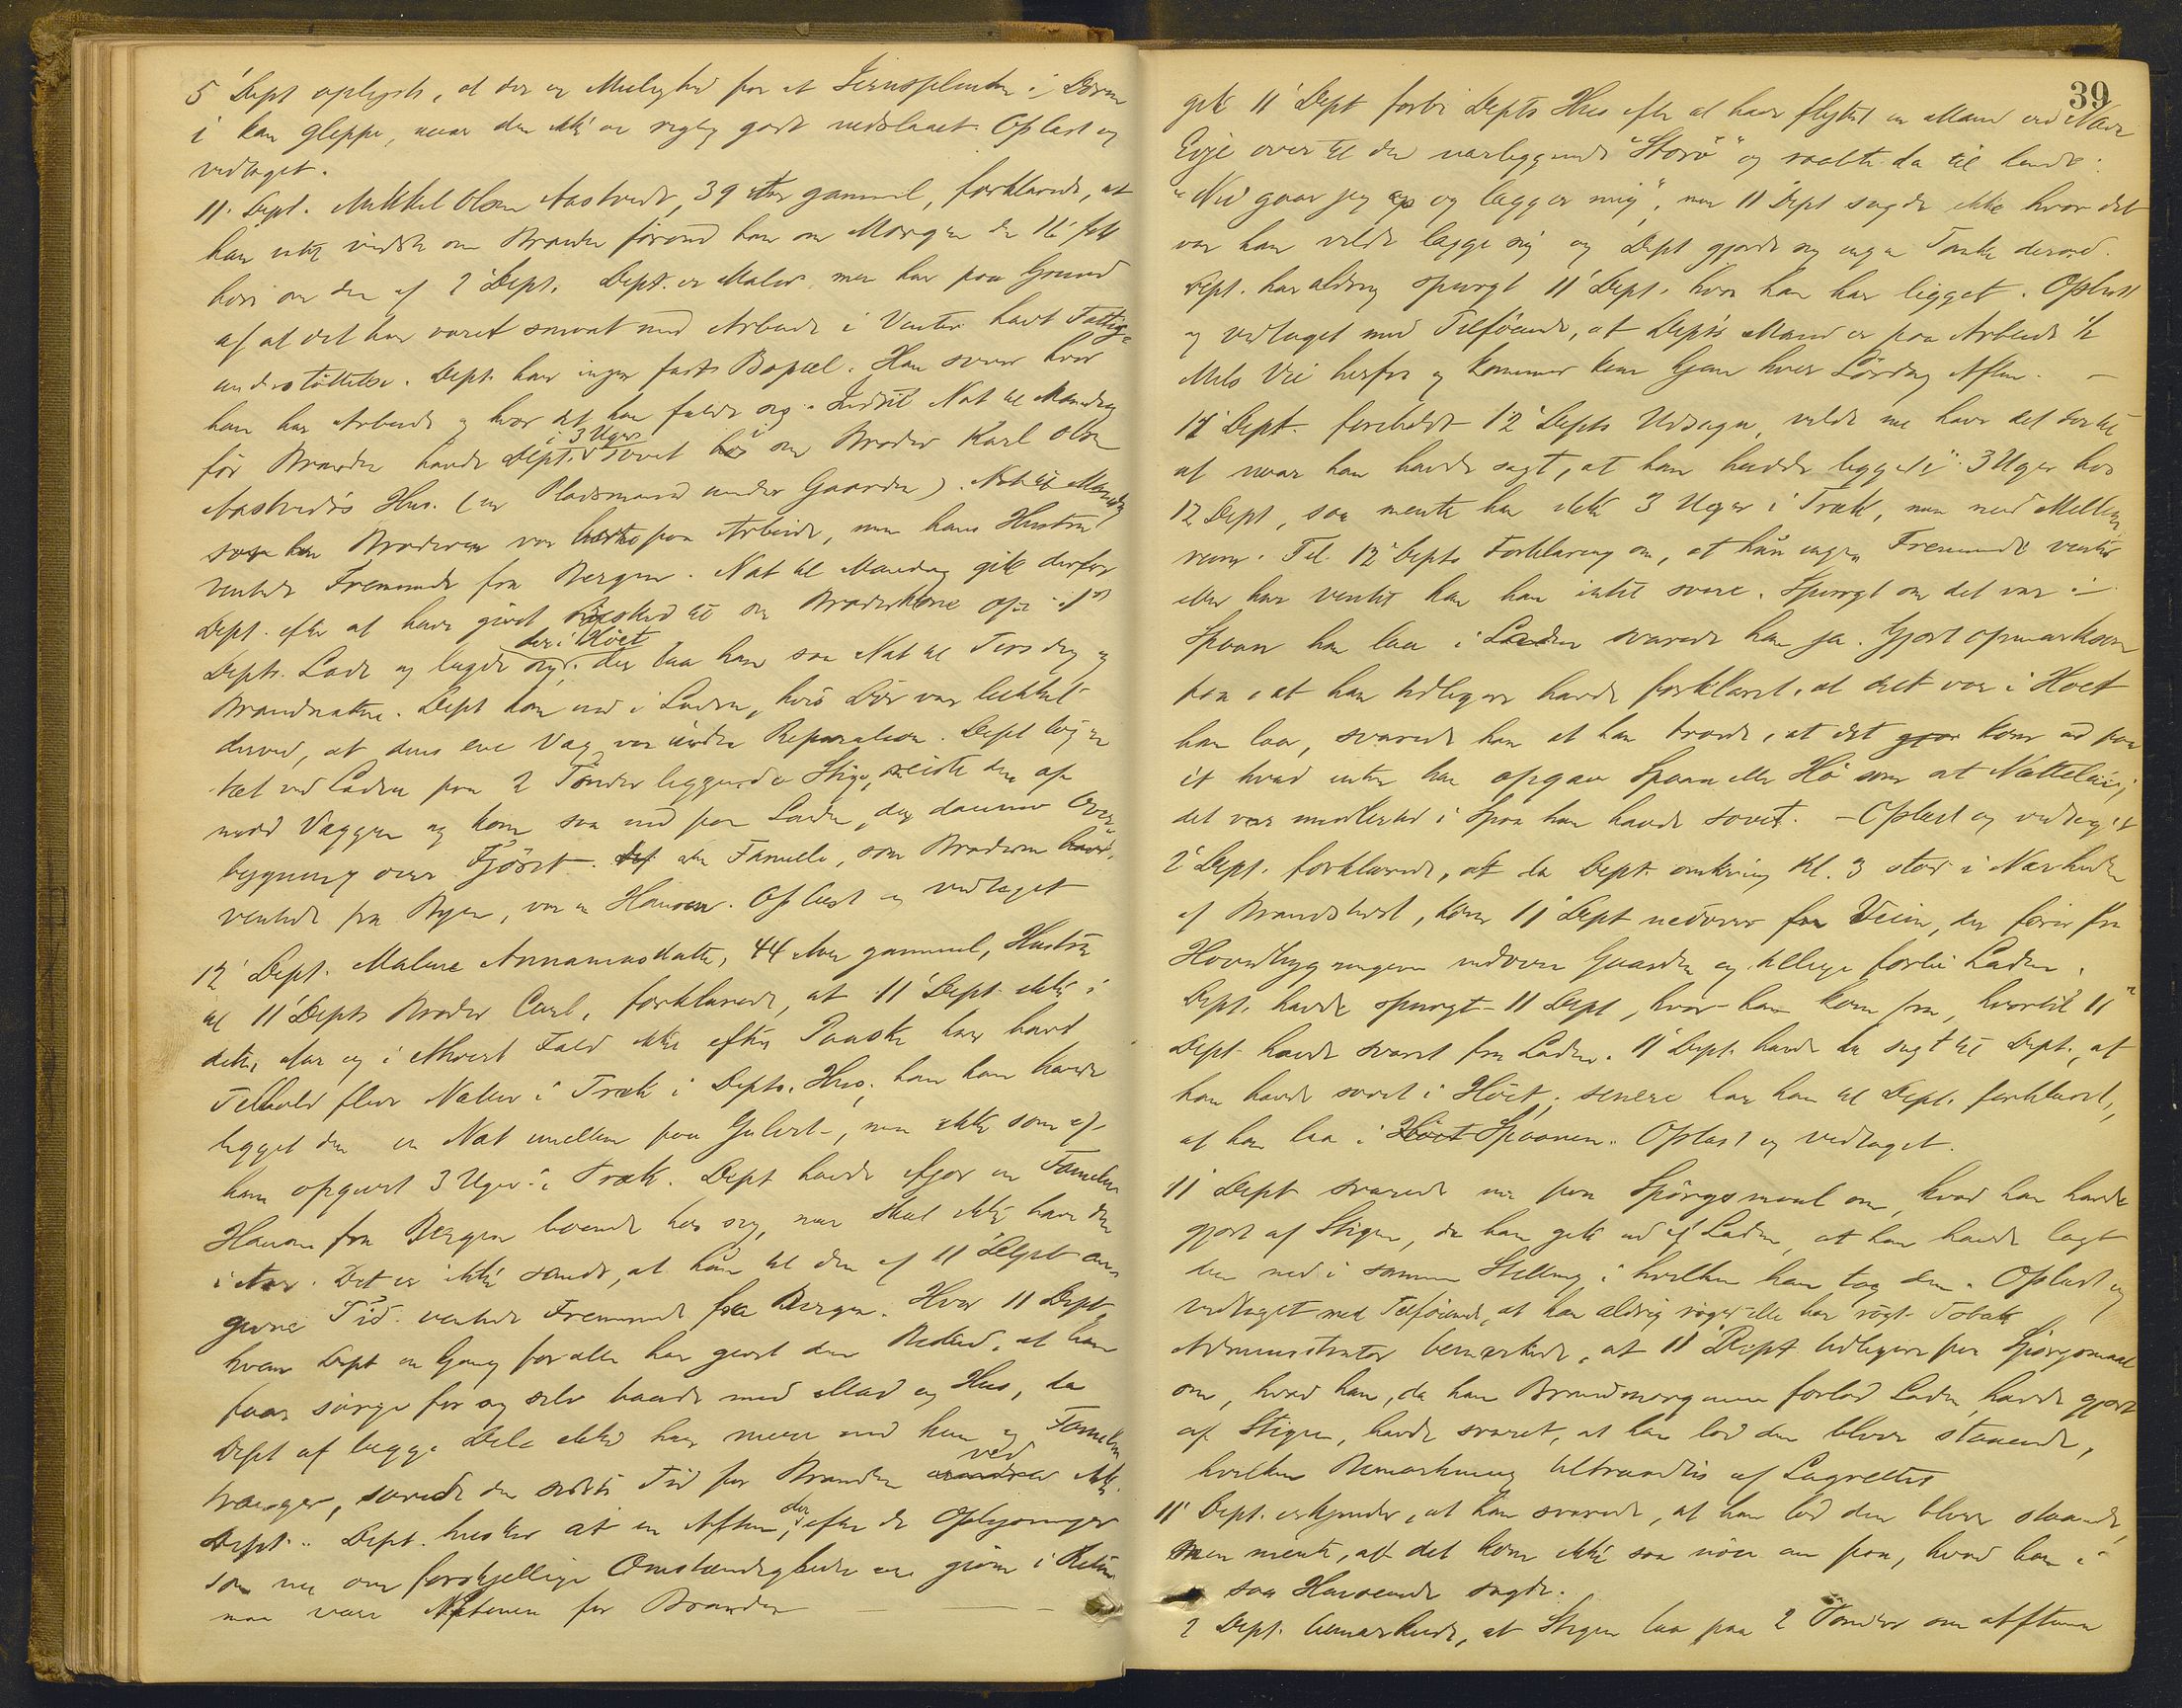 5' Dept oplyste, at der er Mulighed for at Jernsplinten i Døren
i kan gleppe, naar den ikke er rigtig godt nedslaaet. Oplæst og
vedtaget.
11' Dept. Mikkel Olsen Aastvedt, 39 Aar gammel, forklarede, at
han intet vidste om Branden førend han om Morgen den 16'
høre om den af 2' Dept. Dept. er Maler, men har paa Grund
af at det har været smaat med Arbeide i Vinter havt Fattig-
understøttelse. Dept. har ingen fast Bopæl. Han sover hvor
han har Arbeide og hvor det kan falde sig. Indtil Nat til Mandag
før Branden havde Dept. i 3 Uger sovet hos sin Broder Karl Olsen
Aastvedts Hus. (en Pladsmand under Gaarden). Nat til Mandag
Broderen var borte paa Arbeide, men hans Hustru
ventede Fremmede fra Bergen. Nat til Mandag gik derfor
Dept. efter at have givet Besked til sin Broderkone op i 1'
Depts. Lade og lagde sig der i Høet. der laa han saa Nat til Tirsdag og
Brandnatten. Dept kom ind i Laden, hvis Dør var lukket
derved, at dens ene Væg var under Reparation. Dept tog en
tæt ved Laden paa 2 Tønder liggende Stige, reiste den op
mod Væggen og kom saa ind paa Laden, der danner Over-
bygning over Fjøset. Familie, som Broderen
ventede fra Byen, var en Hansen. Oplæst og vedtaget
12' Dept. Malene Annamusdatter, 44 Aar gammel, Hustru
til 11' Depts Broder Carl, forklarede, at 11' Dept. ikke i
dette Aar og i Ethvert Fald ikke efter Paaske har havt
Tilhold flere Nætter i Træk i Depts. Hus; han kan have
ligget der en Nat imellem paa Gulvet, men ikke som af
ham opgivet 3 Uger i Træk. Dept havde ifjor en Familie
Hansen fra Bergen boende hos sig, men skal ikke have den
i Aar. Det er ikke sandt, at hun til den af 11' Dept an-
givne Tid ventede Fremmede fra Bergen. Hvor 11 Dept.
hvem Dept en Gang for alle har givet den Besked, at han
faar sørge for sig selv baade med Mad og Hus, da
Dept af begge Dele ikke har mere end hun og Familien
trænger, sovede den sidste Tid før Branden ved ikke
Dept. Dept. husker at en Aften, der efter de Oplysninger
som nu om forskjellige Omstændigheder er givne i Retten
maa være Aftenen før Branden
39
gik 11' Dept forbi Depts Hus efter at have flyttet en Mand ved Navn
Evje over til den nærliggende "Storø" og raabte da til hende:
"Nu gaar jeg op og lægger mig", men 11' Dept sagde ikke hvor det
var han vilde lægge sig og Dept gjorde sig ingen Tanke derom.
Dept. har aldrig spurgt 11' Dept. hvor han har ligget. Oplæst
og vedtaget med Tilføiende, at Depts Mand er paa Arbeide ½
Mils Vei herfra og kommer kun hjem hver Lørdag Aften. –
11' Dept. foreholdt 12' Depts Udsagn, vilde nu have det dertil
at naar han havde sagt, at han havde ligget i 3 Uger hos
12 Dept, saa mente han ikke 3 Uger i Træk, men med Mellem-
rum. Til 12' Depts Forklaring om, at hun ingen Fremmede venter
eller har ventet kan han intet svare. Spurgt om det var i
Spaan han laa i Laden svarede han ja. Gjort opmærksom
paa, at han tidligere havde forklaret, at det var i Høet
han laa, svarede han at han troede, at det kom ud paa
et hvad enten han opgav Spaan eller Hø som at Natteleie;
det var imidlertid i Spaan han havde sovet. – Oplæst og vedtaget
2' Dept. forklarede, at da Dept. omkring Kl. 3 stod i Nærheden
af Brandstedet, kom 11' Dept nedover fra Veien, der fører fra
Hovedbygningen nedover Gaarden og tillige forbi Laden.
Dept. havde spurgt 11 Dept, hvor han kom fra, hvortil 11'
Dept. havde svaret fra Laden. 11' Dept. havde da sagt til Dept., at
han havde sovet i Høet; senere har han til Dept. forklaret,
at han laa i Høet Spaanen. Oplæst og vedtaget.
11' Dept svarede nu paa Spørgsmaal om, hvad han havde
gjort af Stigen, da han gik ud af Laden, at han havde lagt
den ned i samme Stilling i hvilken han tog den. Oplæst og
vedtaget med Tilføiende, at han aldrig røger eller har røgt Tobak
Administrator bemærkede, at 11' Dept tidligere paa Spørgsmaal
om, hvad han, da han Brandmorgenen forlod Laden, havde gjort
af Stigen, havde svaret, at han lod den blive staaende,
hvilken Bemærkning tiltraadtes af Lagrettet
11' Dept. erkjender, at han svarede, at han lod den blive staaende,
men mente, at det kom ikke saa nøie an paa, hvad han i
saa Henseende sagde.
2 Dept. bemærkede, at Stigen laa paa 2 Tønder om Aftenen